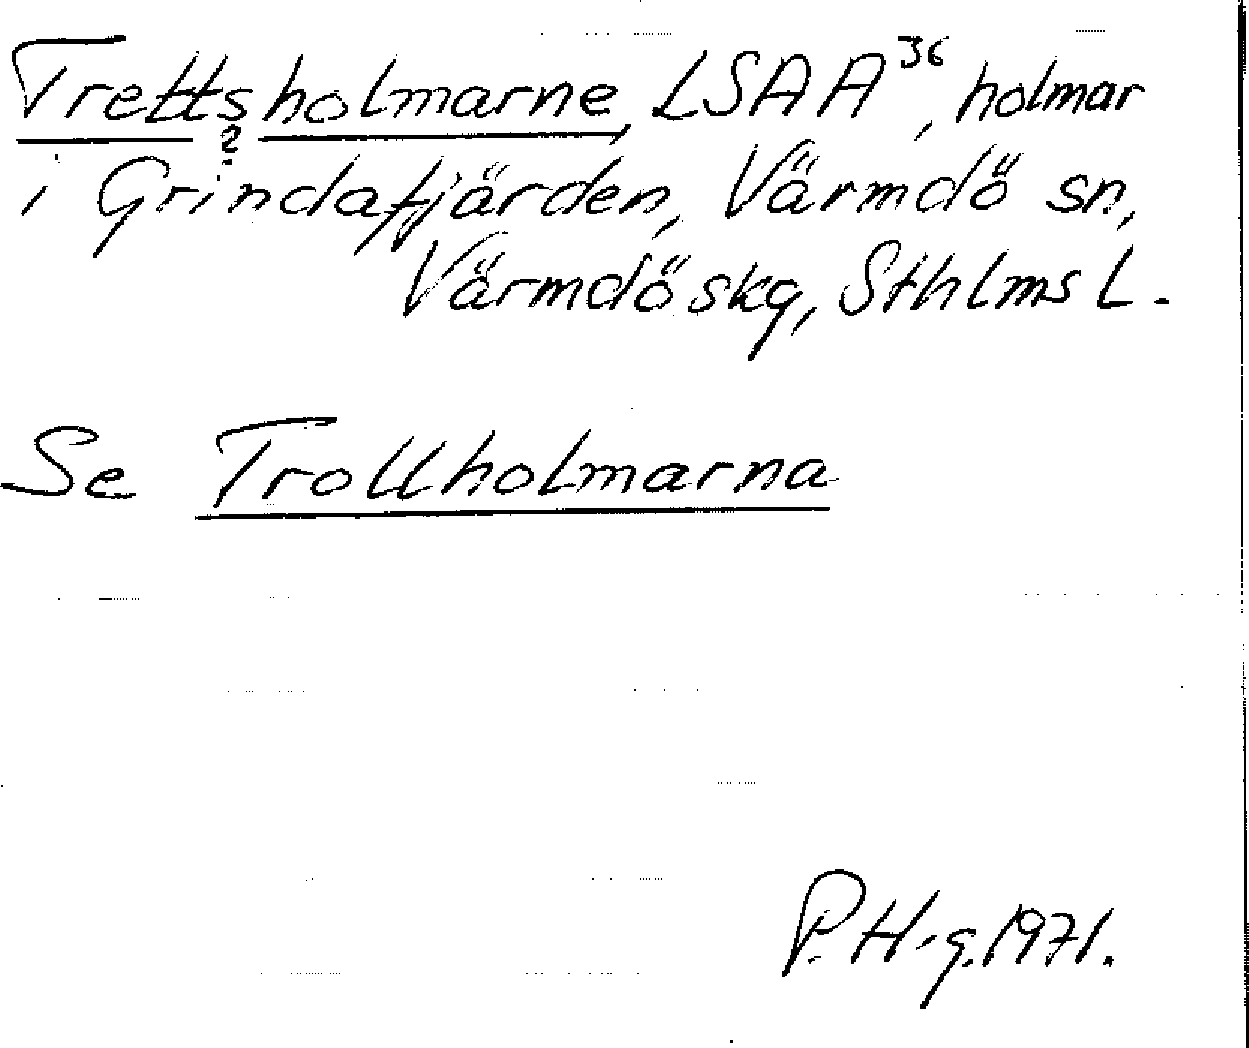 Trettsholmarne, LSAA³⁶, holmar
?
i Grindafjärden, Värmdö sn,
Värmdö skg, Sthlms L.
Se Trollholmarna
P. H-g. 1971.